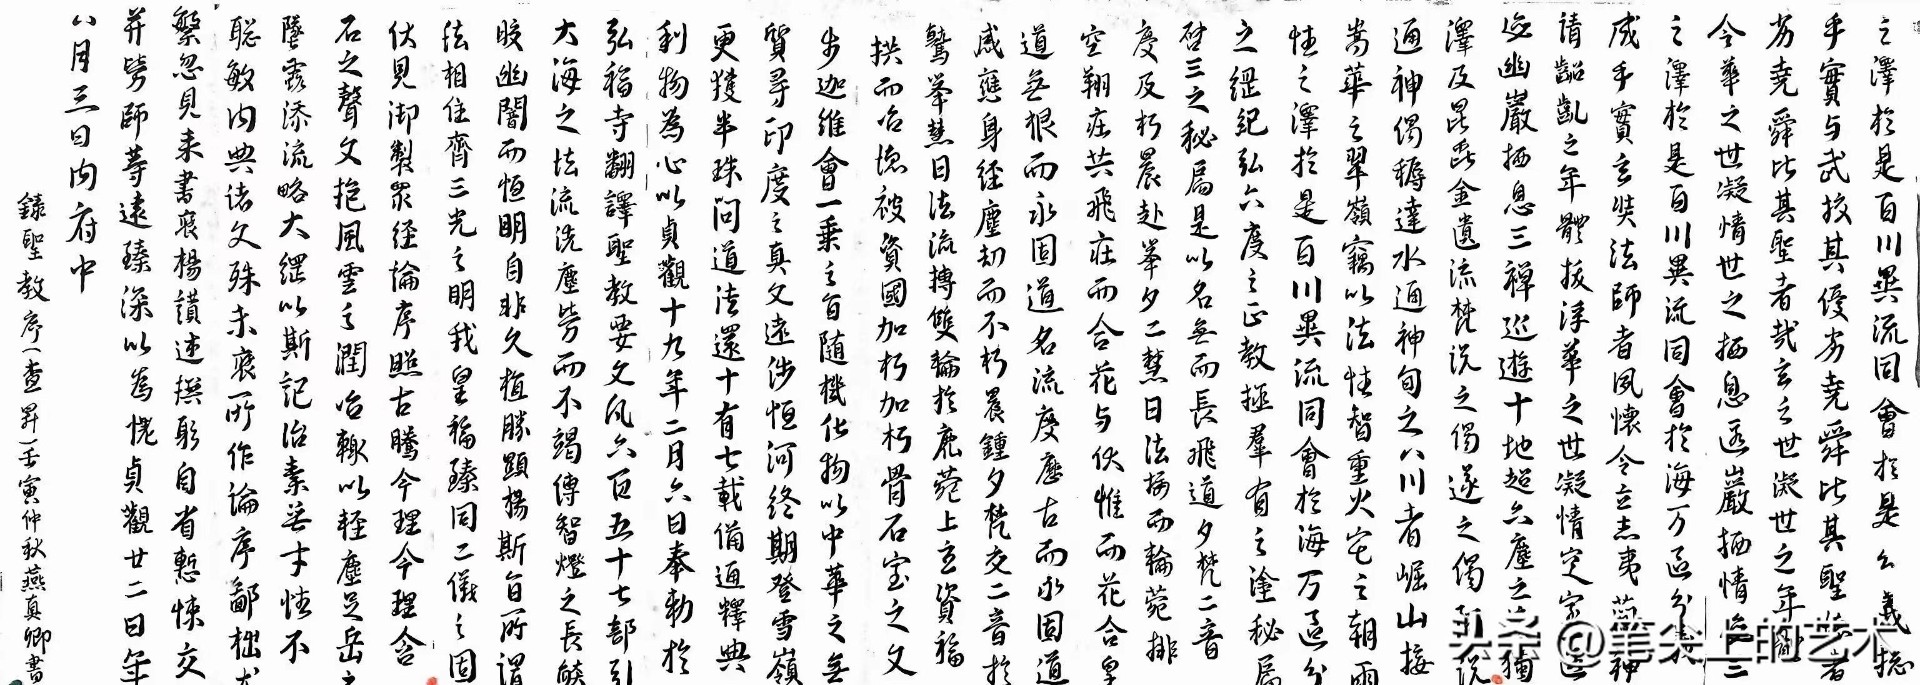 之澤於是百川異流同會於是公義摠
手實与武挍其優劣堯舜比其聖德者
劣堯舜比其聖者哉玄之世凝世之年體
今華之世凝情世之栖息遜巖栖情定三
之澤於是百川異流同會於海万區分義
成手實玄奘法師者夙懷令立志夷簡神
請齠齔之年體拔浮華之世凝情定室
迹幽巖栖息三禪巡遊十地超六塵之獨
澤及昆蟲金遺流梵說之偈遂之偈
通神偈耨達水通神甸之八川者崛山接
嵩華之翠嶺竊以法性智重火宅之朝雨
性之澤於是百川異流同會於海万區分
之綱紀弘六度之正教拯羣有之塗秘扃
啓三之秘扃是以名無而長飛道夕梵二音
慶及朽晨赴峯夕二慧日法接而輪菀排
空翔莊共飛莊而合花与伏惟而花合皇
道無艰而永固道名流慶歷古而永固道
感應身經塵劫而不朽晨鍾夕梵交二音於
鷲峯慧日法流轉雙輪於鹿菀上玄資福
拱而治德被資國加朽加朽骨石室之文
步迦維會一乘之旨随機化物以中華之無
質尋印度之真文遠涉恒河終期登雪嶺
更獲半珠問道法還十有七載備通釋典
利物為心以貞觀十九年二月六日奉勅於
弘福寺翻譯聖教要文凡六百五十七部引
大海之法流洗塵勞而不竭傳智燈之長燄
皎幽闇而恒明自非久植勝顯揚斯旨所謂
法相住齊三光之明我皇福臻同二儀之固
伏見御製眾經論序照古騰今理今理含
石之聲文抱風雲之潤治輙以輕塵足岳
墜露添流略大綱以斯記治素無才性不
聡敏内典諸文殊未㐮所作論序鄙拙尤
繁忽見来書襃楊讃述撫躬自省慙悚交
并勞師等遠臻深以為愧貞觀廿二日年
八月三日内府中
錄聖教序一查昇一壬寅仲秋燕真卿書
头条@笔尖上的艺术